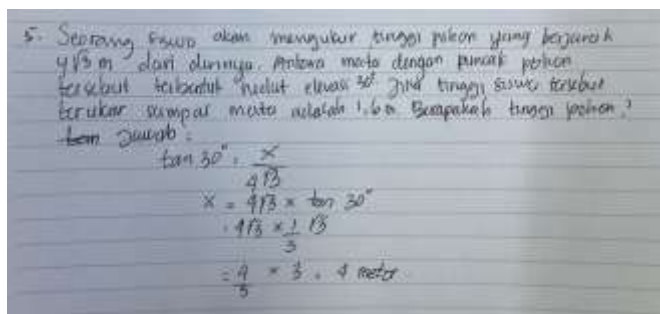 5. Seorang siswa akan mengukur tinggi pohon yang berjarak
4√3 m dari dirinya. Antara mata dengan puncak pohon
tersebut terbentuk sudut elevasi 30° Jika tinggi siswa tersebut
terukur sampai mata adalah 1,6 m. Berapakah tinggi pohon?
Jawab:
tan 30° = x / 4√3
x = 4√3 × tan 30°
= 4√3 × 1/3 √3
= 4/3 × 3 = 4 meter